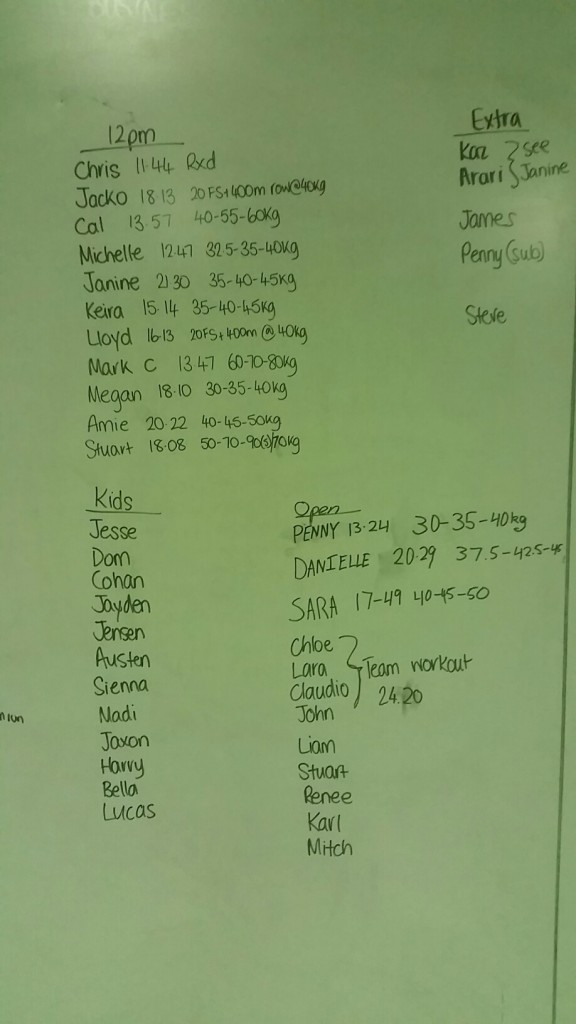 12pm
Chris 11.44 Rxd
Jacko 18.13 20FS+400m row@40kg
Cal 13.57 40-55-60kg
Michelle 12.47 32.5-35-40kg
Janine 21.30 35-40-45kg
Keira 15.14 35-40-45kg
Lloyd 16.13 20FS+400m @ 40kg
Mark C 13.47 60-70-80kg
Megan 18.10 30-35-40kg
Amie 20.22 40-45-50kg
Stuart 18.08 50-70-90(3)/70kg
Extra
Kaz } see
Arari } Janine
James
Penny (sub)
Steve
Kids
Jesse
Dom
Cohan
Jayden
Jensen
Austen
Sienna
Nadi
Jaxon
Harry
Bella
Lucas
Open
PENNY 13.24 30-35-40kg
DANIELLE 20.29 37.5-42.5-45
SARA 17-49 40-45-50
Chloe
Lara } Team workout
Claudio 24.20
John
Liam
Stuart
Renee
Karl
Mitch